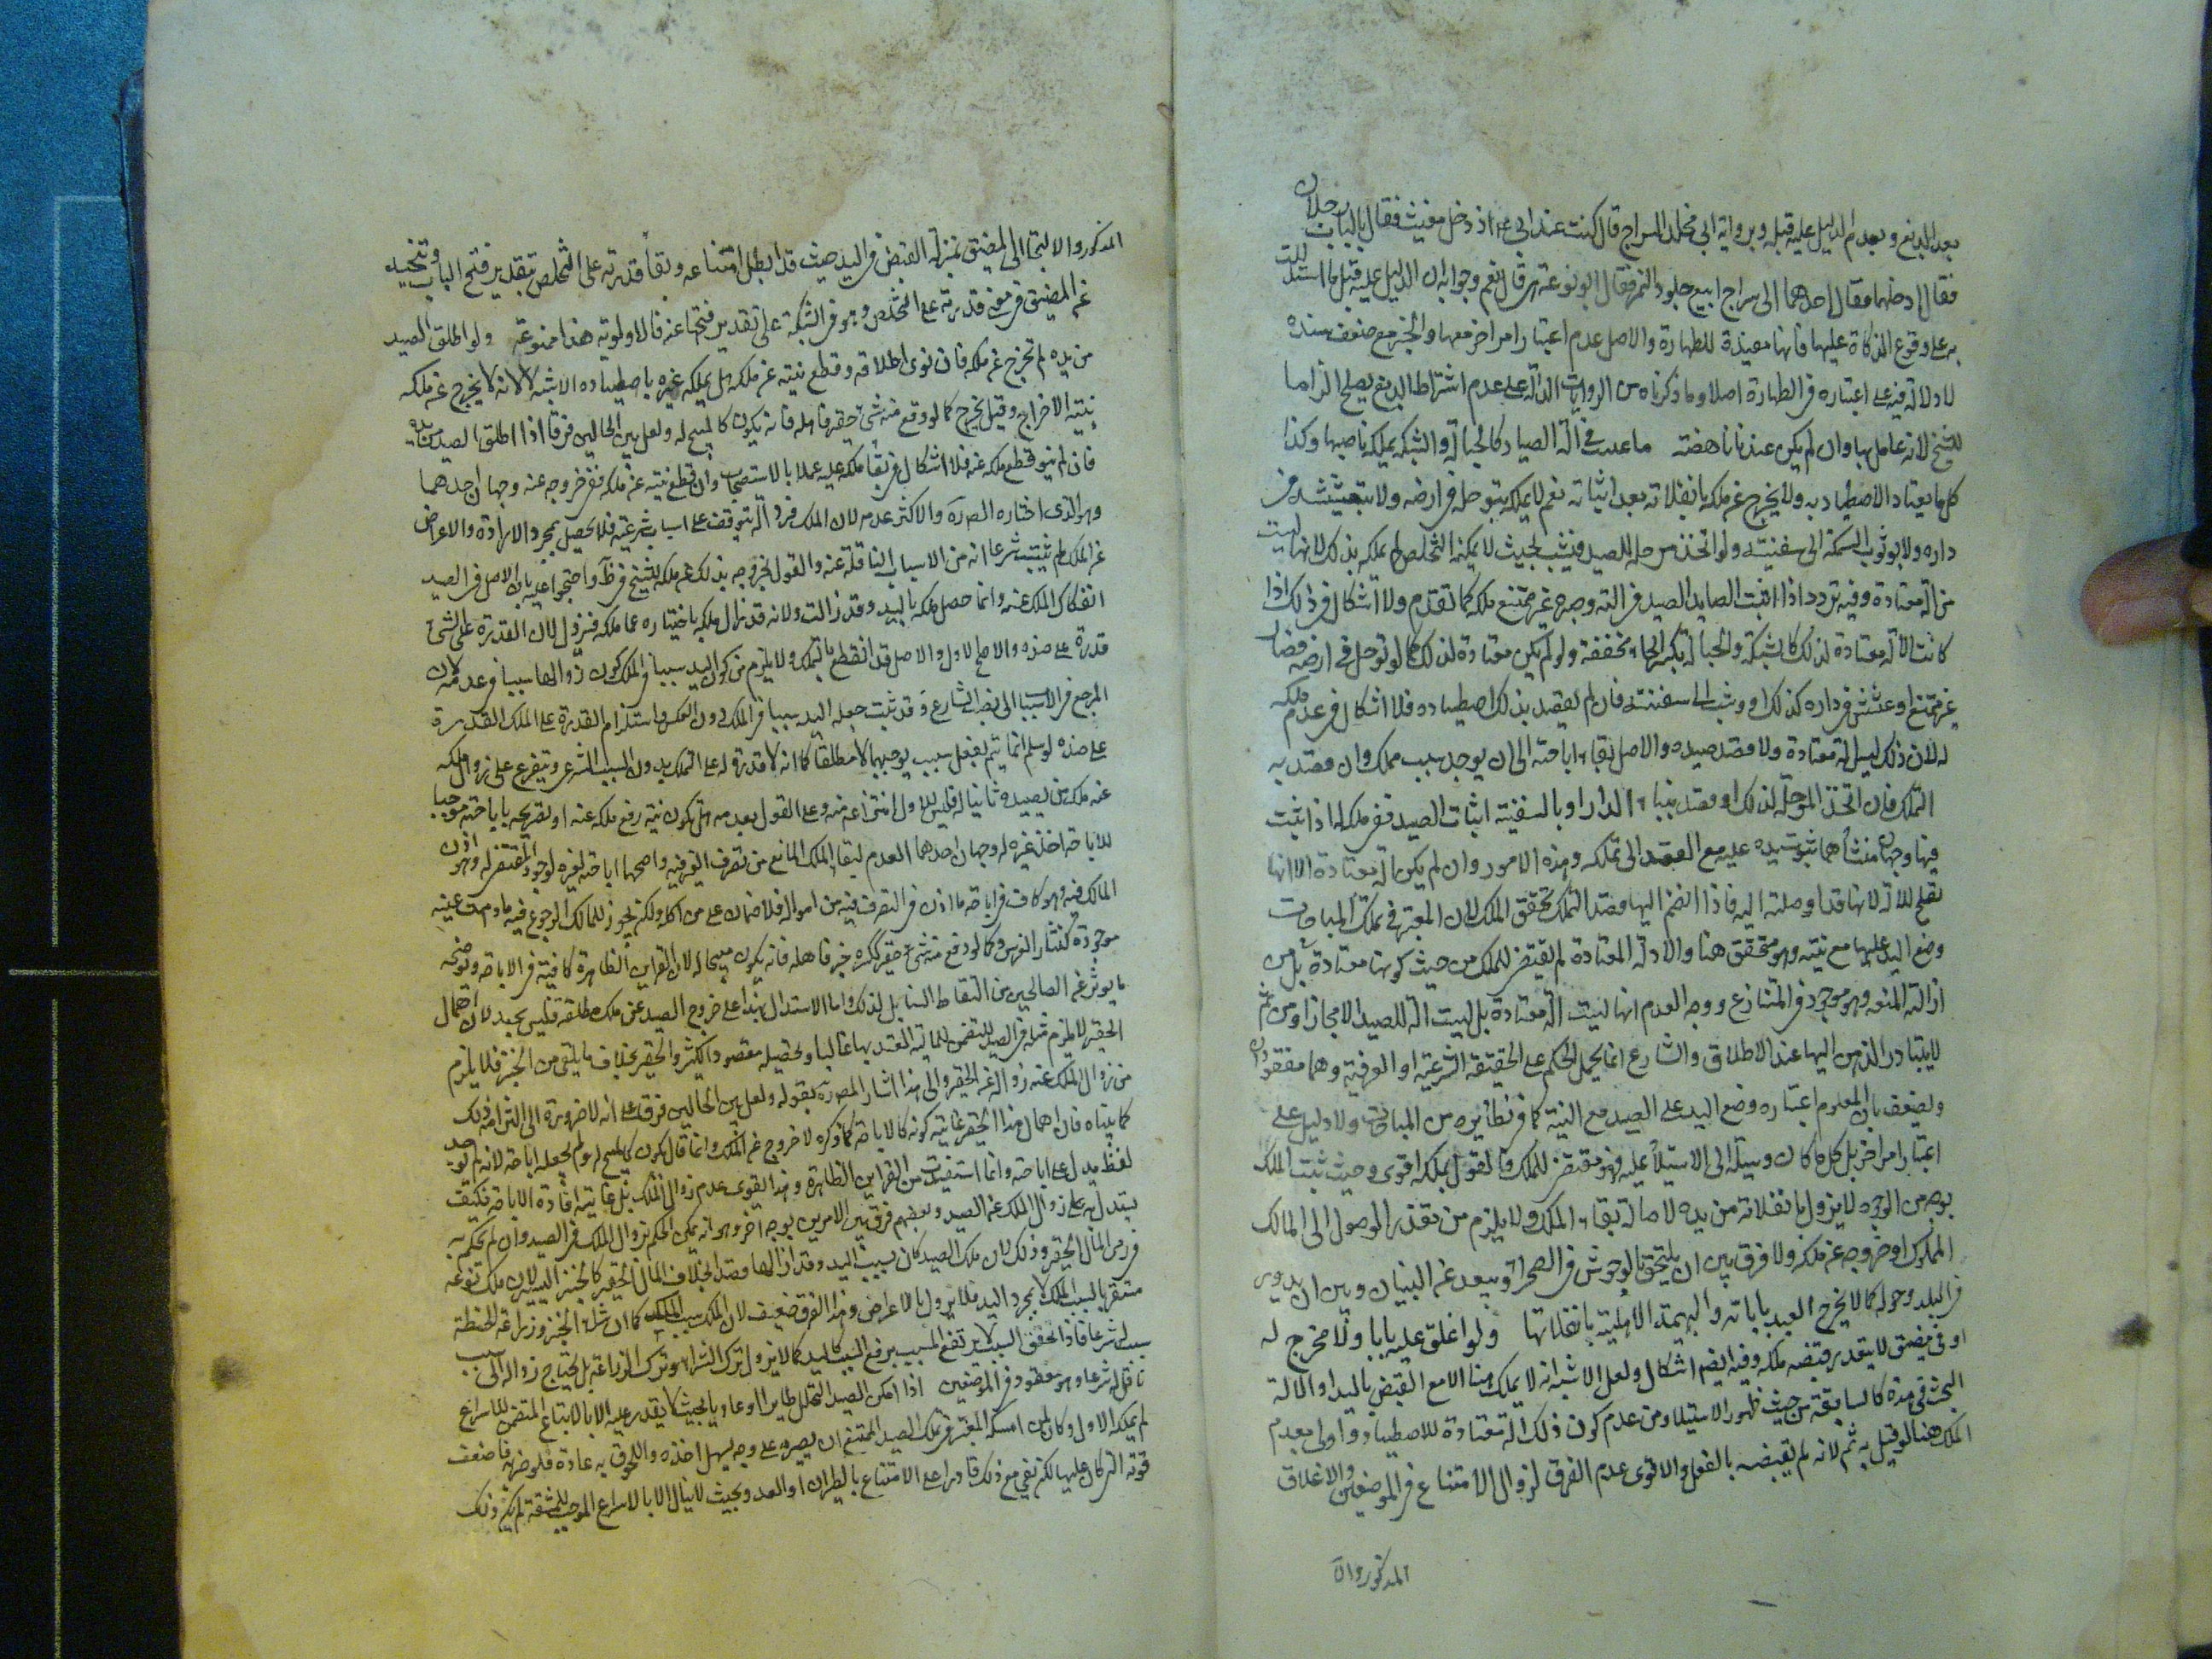 بعد الدبغ وبعدم الدليل عليه قبله وبرواية ابى مخلد السراج قال كنت عند ابى عبد الله اذ دخل معتب فقال بالباب رجلان
فقال ادخلهما فقال احدهما انى سراج ابيع جلود النمر فقال امدبوغة هى قال نعم وجوابه ان الدليل عليه قبل ما استدللت
به على وقوع الذكاة عليها فانها مفيدة للطهارة والاصل عدم اعتبار امر اخر معها والخبر مع ضعف سنده
لا دلالة فيه على اعتباره فى الطهارة اصلا وما ذكرناه من الروايات الدالة على عدم اشتراط الدبغ يصلح الزاما
للشيخ لانه عامل بها وان لم يكن عندنا ناهضة ما يثبت فى آلة الصياد كالحبالة والشبكة يملكه ناصبها وكذا
كل ما يعتاد الاصطياد به ولا يخرج عن ملكه بانفلاته بعد اثباته نعم لا يملكه بتوحله فى ارضه ولا بتعشيشه فى
داره ولا بوثوب السمكة الى سفينته ولو اتخذ موحلة للصيد فنشب بحيث لا يمكنه التخلص لم يملكه بذلك لانها ليست
من الة معتادة وفيه تردد اذا اثبت الصايد الصيد فى الته وصيره غير ممتنع ملكه كما تقدم ولا اشكال فى ذلك اذا
كانت الآلة معتادة لذلك كالشبكة والحبالة بكسر الحاء مخففة ولو لم يكن معتادة لذلك كما لو توحل فى ارضه فصار
غير ممتنع او عشش فى داره كذلك او وثب الى سفينته فان لم يقصد بذلك اصطياده فلا اشكال فى عدم ملكه
له لان ذلك ليس الة معتادة ولا قصد صيده والاصل بقاء اباحته الى ان يوجد سبب مملك وان قصد به
التملك فان اتخذ الموحلة لذلك او قصد ببناء الدار او بالسفينة اثبات الصيد ففى ملكه له اذا ثبت
فيها وجهان منشأهما ثبوت يده عليه مع القصد الى تملكه وهذه الامور وان لم يكن الة معتادة الا انها
تصلح للآلة لانها قد اوصلته اليه فاذا انضم اليها قصد التملك تحقق الملك لان المعتبر فى تملك المباحات
وضع اليد عليها مع نيته وهو متحقق هنا والادلة المعتادة لم تقتض الملك من حيث كونها معتادة بل من
ازالته المنعة وهو موجود فى المتنازع ووجه العدم انها ليست الة معتادة بل ليست الة للصيد الا مجازا ومن ثم
لا يتبادر الذهن اليها عند الاطلاق والشارع انما يحمل الحكم على الحقيقة الشرعية او العرفية وهما مفقودان
ويضعف بان المعلوم اعتباره وضع اليد على الصيد مع النية كما فى نظائره من المباحات ولا دليل على
اعتبار امر اخر بل كل ما كان وسيلة الى الاستيلاء عليه فهو مقتض للملك فالقول بملكه اقوى وحيث ثبت الملك
بوجه من الوجوه لا يزول بانفلاته من يده لاصالة بقاء الملك ولا يلزم من تعذر الوصول الى المالك
المملوك او خروجه عن ملكه ولا فرق بين ان يلتحق بالوحوش فى الصحراء ويبعد عن البنيان وبين ان يدور
فى البلد وحوله كما لا يخرج العبد باباقه والبهيمة الاهلية بانفلاتها ولو اغلق عليه بابا ولا مخرج له
او فى مضيق لا يتعذر قبضه ملكه وفيه ايضا اشكال ولعل الاشبه انه لا يملك هنا الا مع القبض باليد او الآلة
البحث فى هذه كالسابقة من حيث ظهور الاستيلاء ومن عدم كون ذلك الة معتادة للاصطياد واولى بعدم
الملك هنا لو قيل به ثم لانه لم يقبضه بالفعل والاقوى عدم الفرق لزوال الامتناع فى الموضعين والاغلاق
المذكور والا
المذكور والالتجا الى المضيق بمنزلة القبض فى اليد حيث قد ابطل امتناعه وبقاء قدرته على التخلص بتقدير فتح الباب وتنحيه
عن المضيق فرع قدرته على التخلص وهو فى الشبكة على تقدير فتحها عنه فالاولوية هنا ممنوعة ولو اطلق الصيد
من يده لم يخرج عن ملكه فان نوى اطلاقه وقطع نيته عن ملكه هل يملكه غيره باصطياده الاشبه لا لانه لا يخرج عن ملكه
بنية الاخراج وقيل يخرج كما لو وقع منه شىء حقير فاهمله فانه يكون كالمبيح له ولعل بين الحالين فرقا اذا اطلق الصيد من يده
فان لم ينو قطع ملكه عنه فلا اشكال فى بقاء ملكه عليه عملا بالاستصحاب وان قطع نيته عن ملكه ففى خروجه عنه وجهان احدهما
وهو الذى اختاره المص ره والاكثر عدمه لان الملك فى زواله يتوقف على اسباب شرعية فلا يحصل بمجرد الارادة والاعراض
عن الملك لم يثبت شرعا انه من الاسباب الناقلة عنه والقول بخروجه بذلك عن ملكه للشيخ فى ط واحتجوا عليه بان الاصل فى الصيد
انفكاك الملك عنه وانما حصل ملكه باليد وقد زالت ولانه قد زال ملكه باختياره عما ملكه فيزول لان القدرة على الشىء
قدرة على ضده والاصح الاول والاصل قد انقطع بالتملك ولا يلزم من كون اليد سببا فى الملك كون زوالها سببا فى عدمه لان
المرجع فى الاسباب الى نصب الشارع وقد ثبت جعله اليد سببا فى الملك دون العكس واستلزام القدرة على الملك القدرة
على ضده لو سلم انما يتم بفعل سبب يوجبها لا مطلقا كما انه لا قدرة له على التملك بدون السبب الشرعى ويتفرع على زوال ملكه
عنه ملك من يصيده ثانيا له فليس للاول انتزاعه منه وعلى القول بعدمه هل تكون نية رفع ملكه عنه او تصريحه باباحته موجبا
للاباحة اخذ غيره له وجهان احدهما العدم لبقاء الملك المانع من تصرف الغير فيه واصحهما اباحته لغيره لوجود المقتضى له وهو اذن
المالك فيه وهو كاف فى اباحة ما اذن فى التصرف فيه من امواله فلا ضمان على من اكله ولكن يجوز للمالك الرجوع فيه ما دامت عينه
موجودة كنثار العرس وكما لو دفع منه شىء حقير ككسرة خبز فاهمله فانه يكون مبيحا له لان القراين الظاهرة كافية فى الاباحة ويوضحه
ما يؤثر عن الصالحين من التقاط السنابل لذلك واما الاستدلال بهذا على خروج الصيد عن ملك مطلقه فليس بجيد لان اهمال
الحقير لا يلزم مثله فى الصيد لتضمن المالية المعتد بها غالبا وتحصيله مقصود الكثير والحقير بخلاف ما يلقى من الخبز فلا يلزم
من زوال الملك عنه زواله عن الحقير والى هذا اشار المص ره بقوله ولعل بين الحالين فرق على انه لا ضرورة الى التزام ذلك
كما بيناه فان اهمال هذا الحقير غايته كونه كالاباحة كما ذكره لا خروج عن الملك وانما قال يكون كالمبيح له ولم يجعله اباحة لانه لم يوجد
لفظ يدل على اباحته وانما استفيدت من القراين الظاهرة وهذا يقوى عدم زوال الملك بل غايته افادة الاباحة فكيف
يستدل به على زوال الملك عن الصيد وبعضهم فرق بين الامرين بوجه اخر وهو انه يمكن الحكم بزوال الملك فى الصيد وان لم يحكم به
فى رمى المال الحقير وذلك لان ملك الصيد كان بسبب اليد وقد ازالها قصدا بخلاف المال الحقير كالخبز اليسير لان ملك نوعه
مستقر بالسبب المملك لا بمجرد اليد فلا يزول بالاعراض وهذا الفرق ضعيف لان الملك سبب الملك كما ان شراء الخبز وزراعة الحنطة
سبب شرعا فاذا تحقق السبب لا يرتفع المسبب برفع السبب كاليد كما لا يزول بترك الشراء وترك الزراعة بل يحتاج زواله الى سبب
ناقل له شرعا وهو مفقود فى الموضعين اذا امكن الصيد التحامل طايرا او عاديا بحيث لا يقدر عليه الا بالاتباع المتضمن للاسراع
لم يملكه الاول وكان لمن امسكه المعتبر فى تملك الصيد الممتنع ان يصيره على وجه يسهل اخذه واللحوق به عادة فلو ضربه فاضعف
قوته التى كان عليها لكن بقى مع ذلك قادرا على الامتناع بالطيران او العدو بحيث لا ينال الا بالاسراع الموجب للمشقة لم يكن ذلك